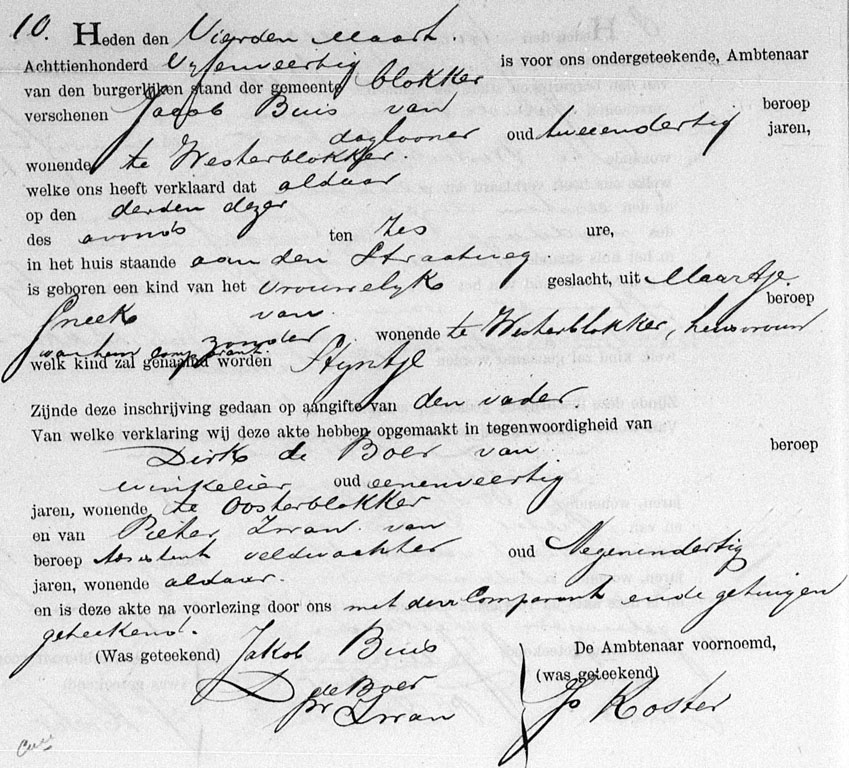 10. Heden den Vierden Maart
Achttienhonderd Vyfenveertig is voor ons ondergeteekende, Ambtenaar
van den burgerlijken stand der gemeente Blokker
verschenen Jacob Buis van beroep
daglooner oud tweeendertig jaren,
wonende te Westerblokker
welke ons heeft verklaard dat aldaar
op den derden dezer
des avonds ten Zes ure,
in het huis staande aan den Straatweg.
is geboren een kind van het vrouwelyk geslacht, uit Maartje
Sneek van beroep
zonder wonende te Westerblokker, huisvrouw
van hem comparant.
welk kind zal genaamd worden Styntje
Zijnde deze inschrijving gedaan op aangifte van den vader.
Van welke verklaring wij deze akte hebben opgemaakt in tegenwoordigheid van
Dirk de Boer van beroep
winkelier oud eenenveertig
jaren, wonende te Oosterblokker
en van Pieter Zwan van
beroep Assistent veldwachter oud Negenendertig
jaren, wonende aldaar.
en is deze akte na voorlezing door ons met den Comparant en de getuigen
geteekend.
(Was geteekend) Jakob Buis
D de Boer
Pr Zwan
De Ambtenaar voornoemd,
(was geteekend)
Js Koster